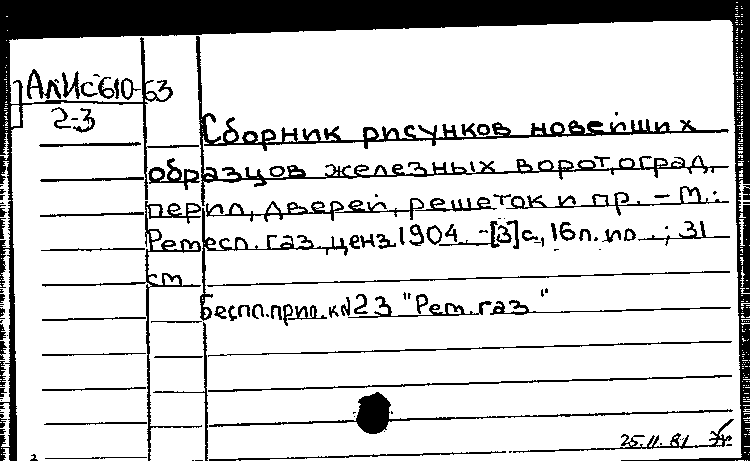 АлИс610-53
2-3
Сборник рисунков новейших
образцов железных ворот, оград,
перил, дверей, решеток и пр. - М.:
Ремесл. газ, ценз 1904. - [3]с, 16л. ил.; 31
см
Беспл. прил. к №23 "Рем. газ."
25.11.81